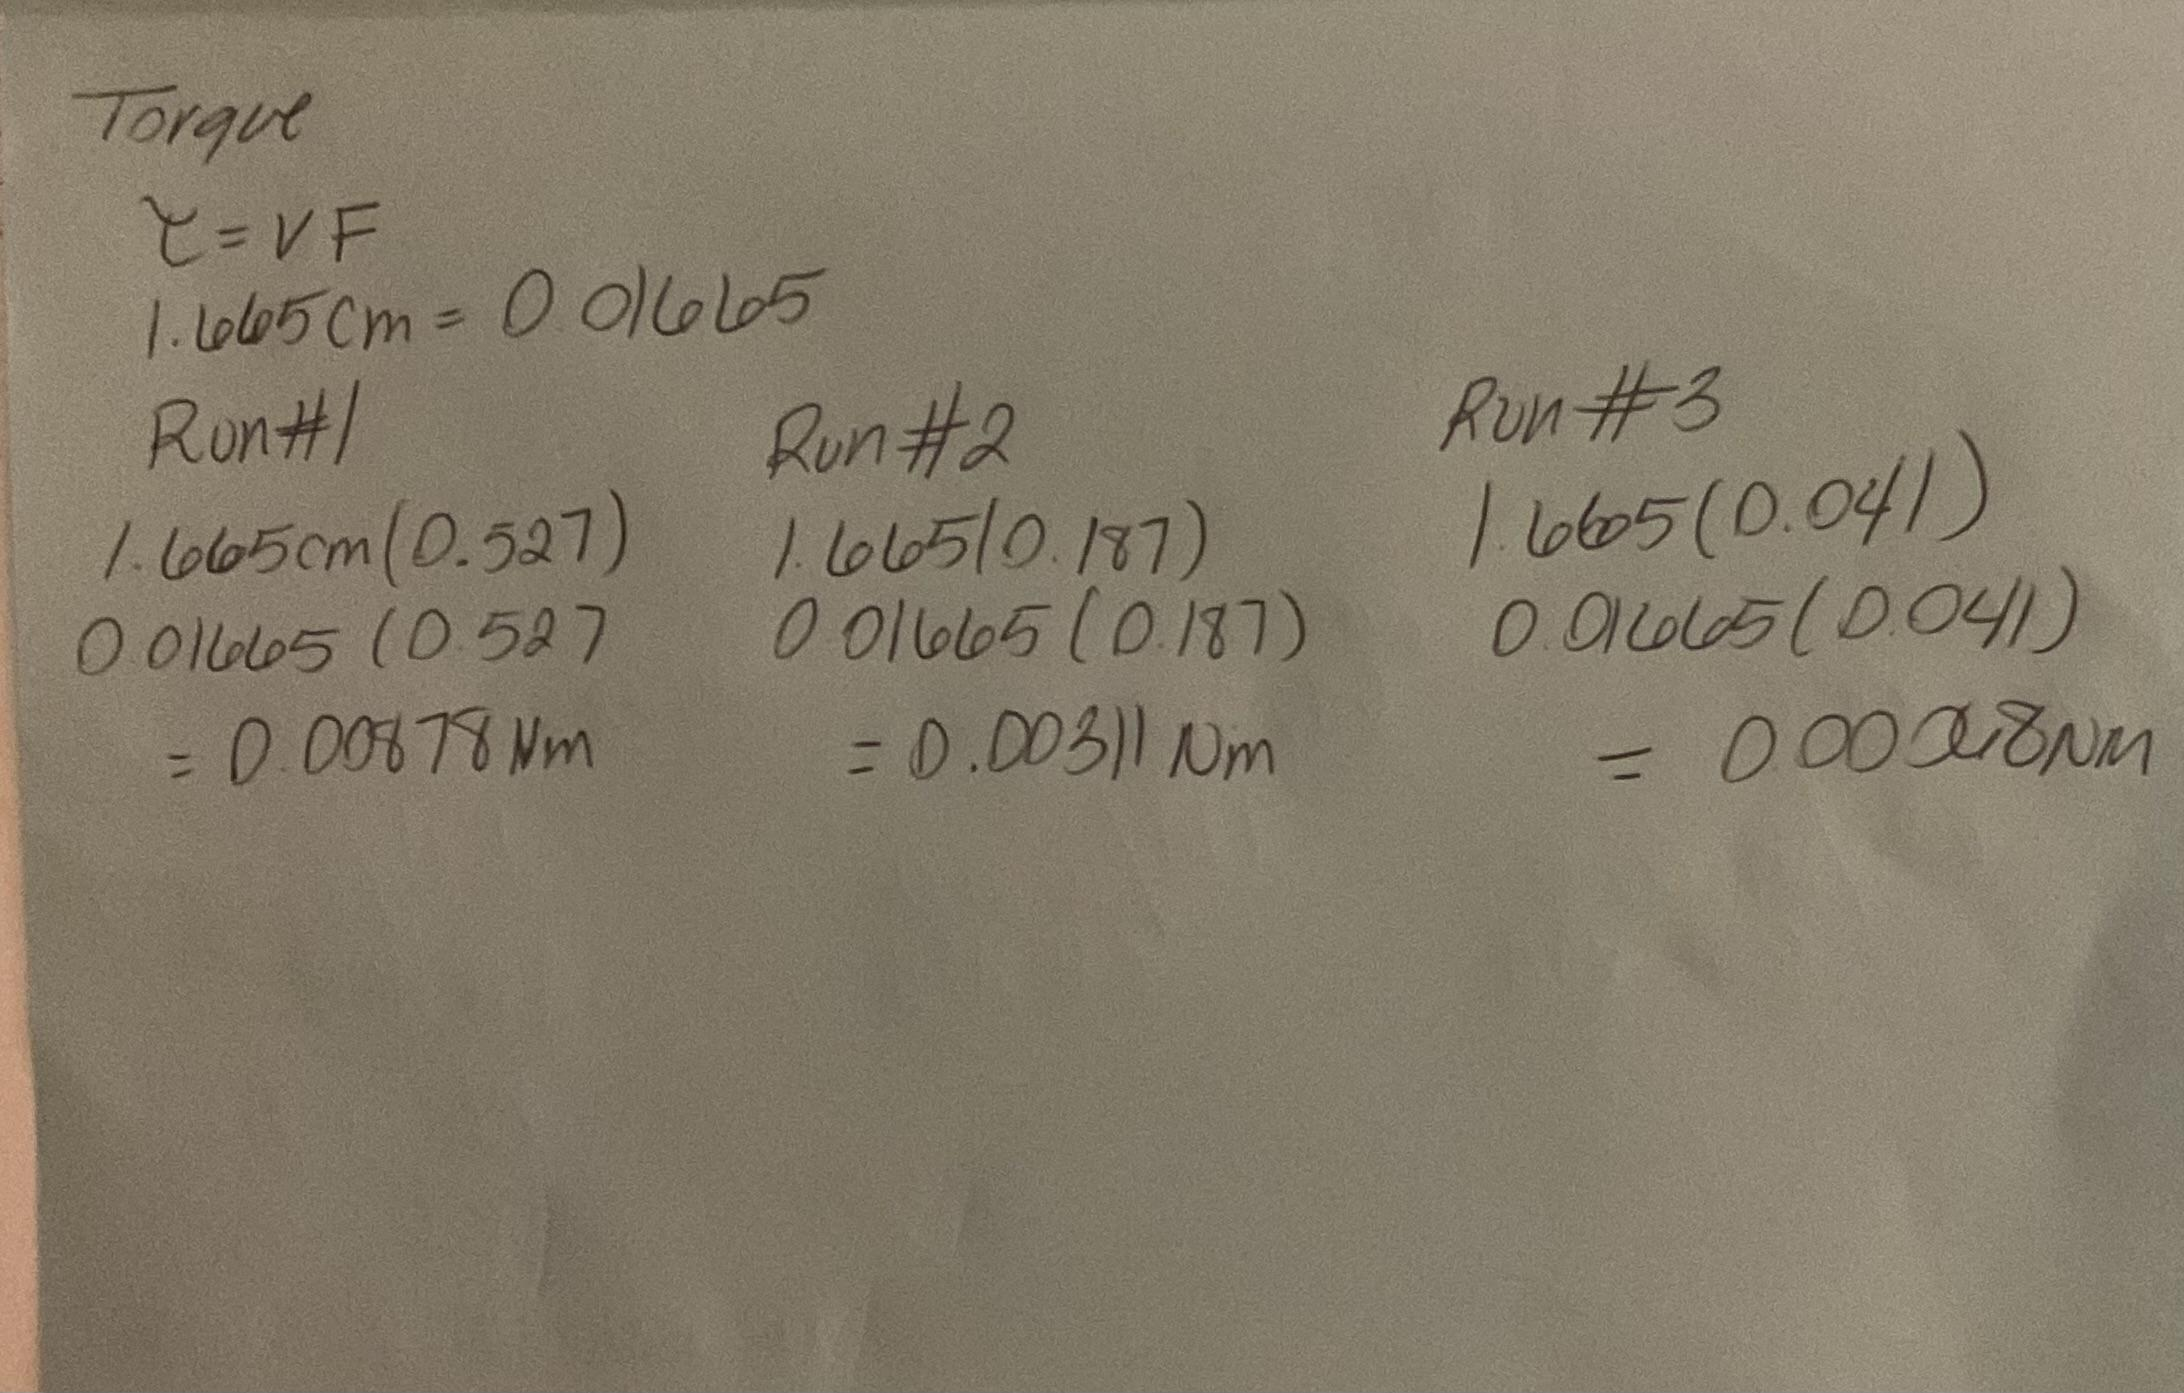 Torque
τ = r F
1.665cm = 0.01665
Run#1
1.665cm(0.527)
0.01665 (0.527
= 0.00878 Nm
Run #2
1.665(0.187)
0.01665 (0.187)
= 0.00311 Nm
Run #3
1.665(0.041)
0.01665 (0.041)
=